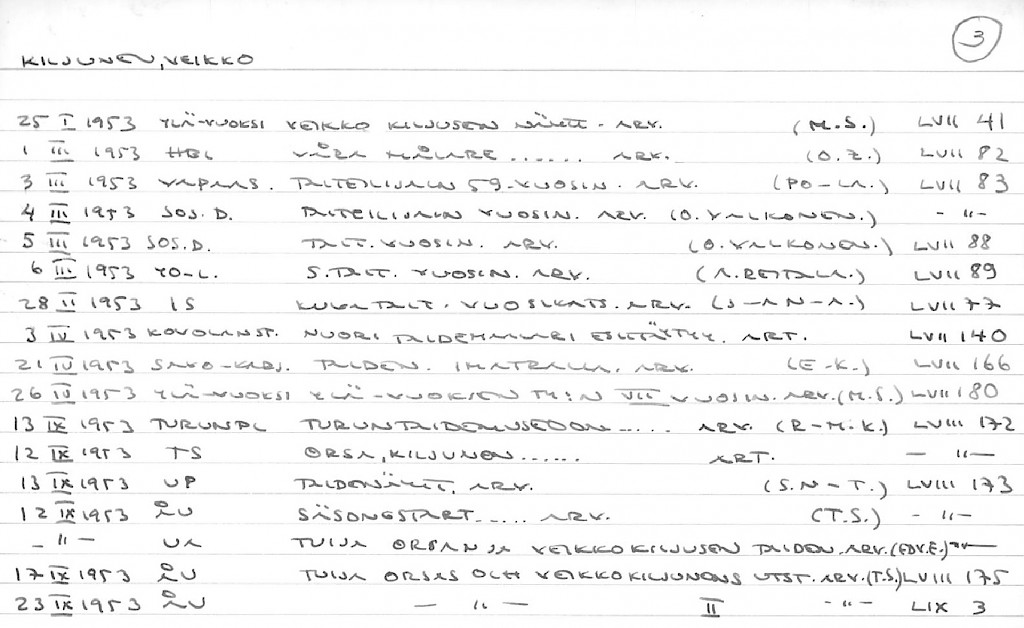 3
KILJUNEN, VEIKKO
25 I 1953 YLÄ-VUOKSI VEIKKO KILJUSEN NÄYTT. ARV. (M.S.) LVII 41
1 III 1953 HBL VÅRA MÅLARE...... ARV. (O.Z.) LVII 82
3 III 1953 VAPAAS. TAITEILIJAIN 59-VUOSIN. ARV. (PO-LA.) LVII 83
4 III 1953 SOS.D. TAITEILIJAIN VUOSIN. ARV. (O.VALKONEN.) -"-
5 III 1953 SOS.D. TAIT. VUOSIN. ARV. (O.VALKONEN.) LVII 88
6 III 1953 YO-L. S.TAIT. VUOSIN. ARV. (A.REITALA.) LVII 89
28 II 1953 IS KUVATAIT. VUOSIKATS. ARV. (S-AN-A.) LVII 77
3 IV 1953 KOUVOLANST. NUORI TAIDEMAALARI ESITTÄYTYY. ART. LVII 140
21 IV 1953 SAVO-KARJ. TAIDEN. IMATRALLA. ARV. (E-K.) LVII 166
26 IV 1953 YLÄ-VUOKSI YLÄ-VUOKSEN TY:N VII VUOSIN. ARV. (M.S.) LVII 180
13 IX 1953 TURUNPL TURUN TAIDEMUSEOON..... ARV. (R-M.K.) LVIII 172
12 IX 1953 TS ORSA, KILJUNEN...... ART. -"-
13 IX 1953 UP TAIDENÄYTT. ARV. (S.N-T.) LVIII 173
12 IX 1953 ÅU SÄSONGSTART...... ARV. (T.S.) -"-
-"- UA TUIJA ORSAN JA VEIKKO KILJUSEN TAIDEN. ARV. (EDV.E.) -"-
17 IX 1953 ÅU TUIJA ORSAS OCH VEIKKO KILJUNENS UTST. ARV. (T.S.) LVIII 175
23 IX 1953 ÅU -"- II -"- LIX 3